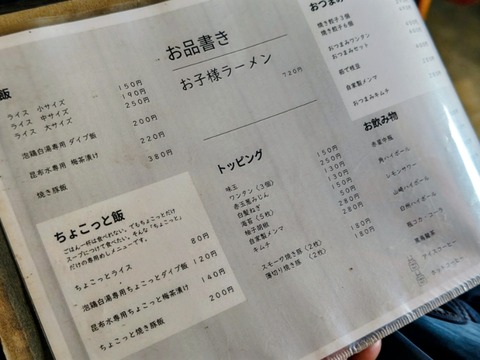 お品書き
お子様ラーメン
720円
飯
ライス 小サイズ 150円
ライス 中サイズ 190円
ライス 大サイズ 250円
泡鶏白湯専用 ダイブ飯 200円
昆布水専用 梅茶漬け 220円
焼き豚飯 380円
ちょこっと飯
ごはん一杯は食べれない。でもちょこっとだけ
スープにつけて食べたい。そんな「ちょこっと」
だけの専用めしメニューです。
ちょこっとライス 80円
泡鶏白湯専用ちょこっとダイブ飯 120円
昆布水専用ちょこっと梅茶漬け 140円
ちょこっと焼き豚飯 200円
トッピング
味玉
ワンタン(3個)
赤玉葱みじん
白髪ねぎ
海苔(5枚)
柚子胡椒
自家製メンマ
スモーク焼き豚(2枚)
薄切り焼き豚(2枚)
150円
250円
130円
150円
150円
50円
280円
180円
180円
おつまみ
焼き餃子3個
焼き餃子6個
おつまみワンタン
おつまみセット
茹で枝豆
自家製メンマ
おつまみキムチ
お飲み物
角ハイボール
レモンサワー
山崎ハイボール
白州ハイボール
瓶コカ・コーラ
黒烏龍茶
アイスコーヒー